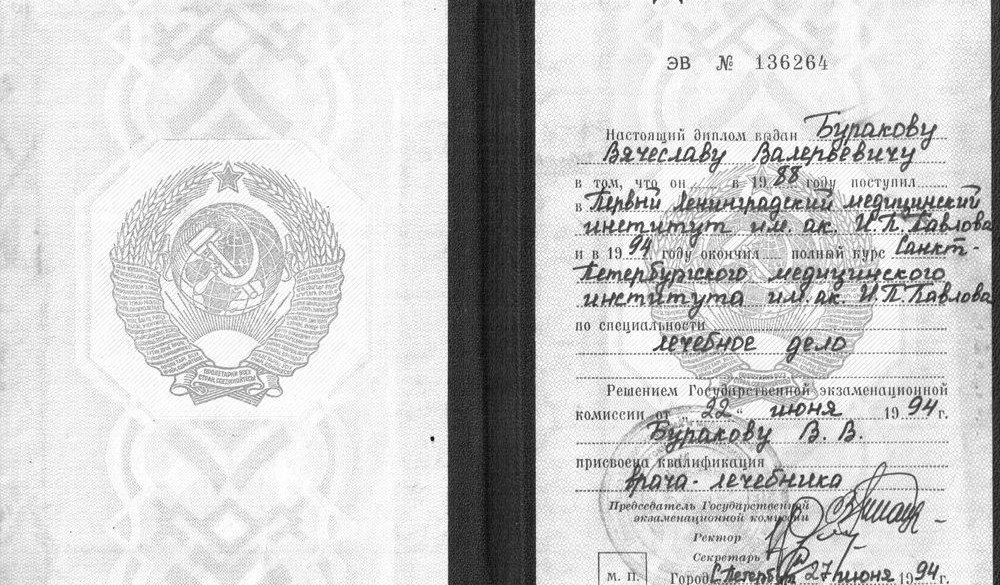 ПРОЛЕТАРИИ ВСЕХ
СТРАН, СОЕДИНЯЙТЕСЬ!
ЭВ № 136264
Настоящий диплом выдан Буракову
Вячеславу Валерьевичу
в том, что он в 1988 году поступил
в Первый Ленинградский медицинский
институт им. ак. И.П. Павлова
и в 1994 году окончил полный курс Санкт-
Петербургского медицинского
института им. ак. И.П. Павлова
по специальности
лечебное дело
Решением Государственной экзаменационной
комиссии от „22“ июня 1994 г.
Буракову В. В.
присвоена квалификация
врача-лечебника
Председатель Государственной
экзаменационной комиссии
Ректор
Секретарь
М. П. Город С.Петербург 27 июня 1994 г.